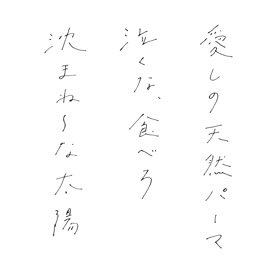 愛しの天然パーマ
泣くな、食べろ
沈まね〜な太陽